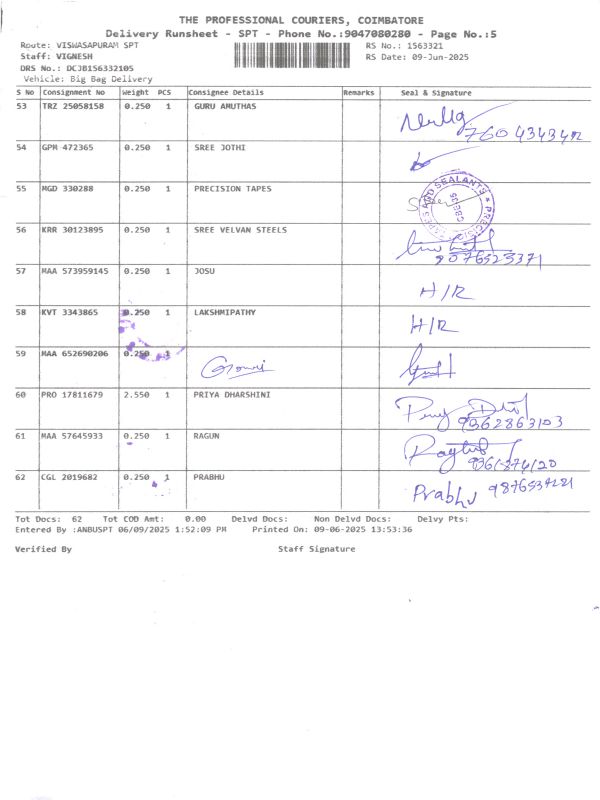 THE PROFESSIONAL COURIERS, COIMBATORE
Delivery Runsheet - SPT - Phone No.:9047080280 - Page No.:5
Route: VISWASAPURAM SPT RS No.: 1563321
Staff: VIGNESH RS Date: 09-Jun-2025
DRS No.: DCJB156332105
Vehicle: Big Bag Delivery
S No Consignment No Weight PCS Consignee Details Remarks Seal & Signature
53 TRZ 25058158 0.250 1 GURU AMUTHAS
54 GPM 472365 0.250 1 SREE JOTHI
55 MGD 330288 0.250 1 PRECISION TAPES
TAPES AND SEALANTS * PRECISION
56 KRR 30123895 0.250 1 SREE VELVAN STEELS
9076523371
57 MAA 573959145 0.250 1 JOSU
H/R
58 KVT 3343865 0.250 1 LAKSHMIPATHY
H/R
59 MAA 652690206 0.250 1 Gowri
60 PRO 17811679 2.550 1 PRIYA DHARSHINI
9362863103
61 MAA 57645933 0.250 1 RAGUN
62 CGL 2019682 0.250 1 PRABHU
Prabhu
Tot Docs: 62 Tot COD Amt: 0.00 Delvd Docs: Non Delvd Docs: Delvy Pts:
Entered By :ANBUSPT 06/09/2025 1:52:09 PM Printed On: 09-06-2025 13:53:36
Verified By Staff Signature